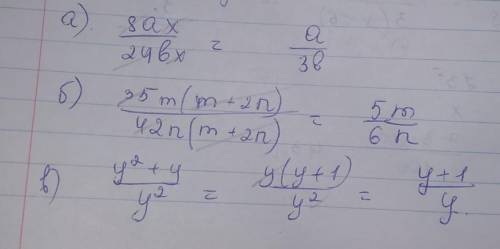 а) 8ax/24bx = a/3b
б) 35m(m+2n)/42n(m+2n) = 5m/6n
в) y²+y/y² = y(y+1)/y² = y+1/y.